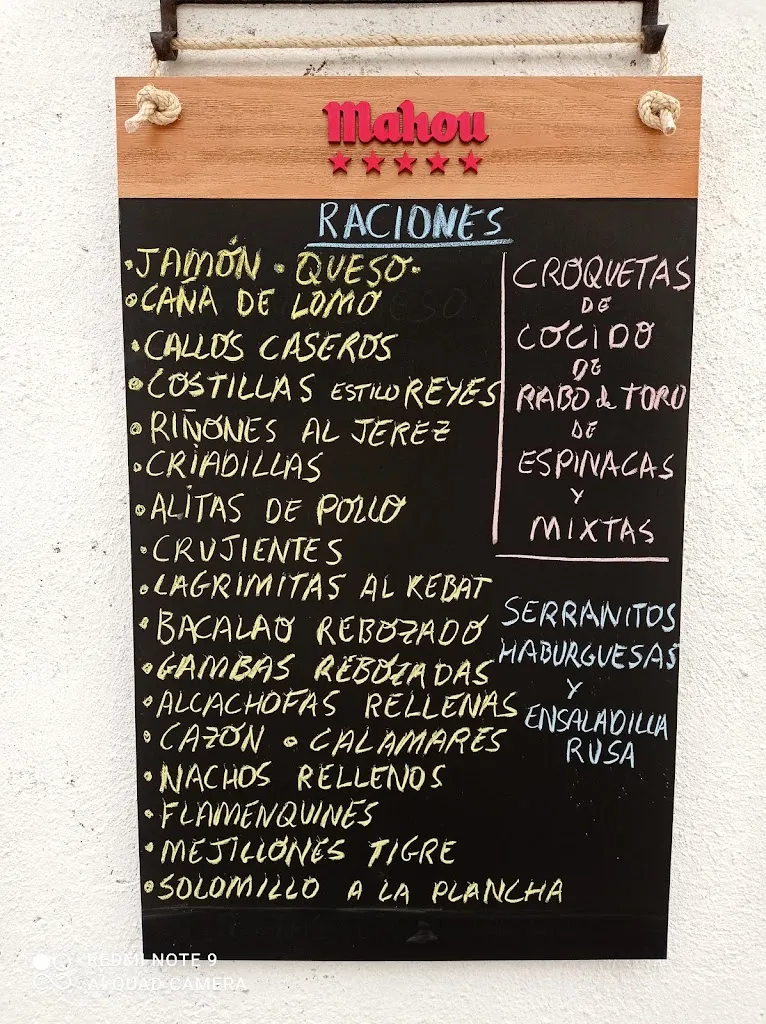 Mahou
RACIONES
•JAMÓN • QUESO•
•CAÑA DE LOMO
•CALLOS CASEROS
•COSTILLAS ESTILO REYES
•RIÑONES AL JEREZ
•CRIADILLAS
•ALITAS DE POLLO
•CRUJIENTES
•LAGRIMITAS AL KEBAT
•BACALAO REBOZADO
•GAMBAS REBOZADAS
•ALCACHOFAS RELLENAS
•CAZÓN • CALAMARES
•NACHOS RELLENOS
•FLAMENQUINES
•MEJILLONES TIGRE
•SOLOMILLO A LA PLANCHA
CROQUETAS
DE
COCIDO
DE
RABO de TORO
DE
ESPINACAS
Y
MIXTAS
SERRANITOS
HABURGUESAS
Y
ENSALADILLA
RUSA
REDMI NOTE 9
AI QUAD CAMERA